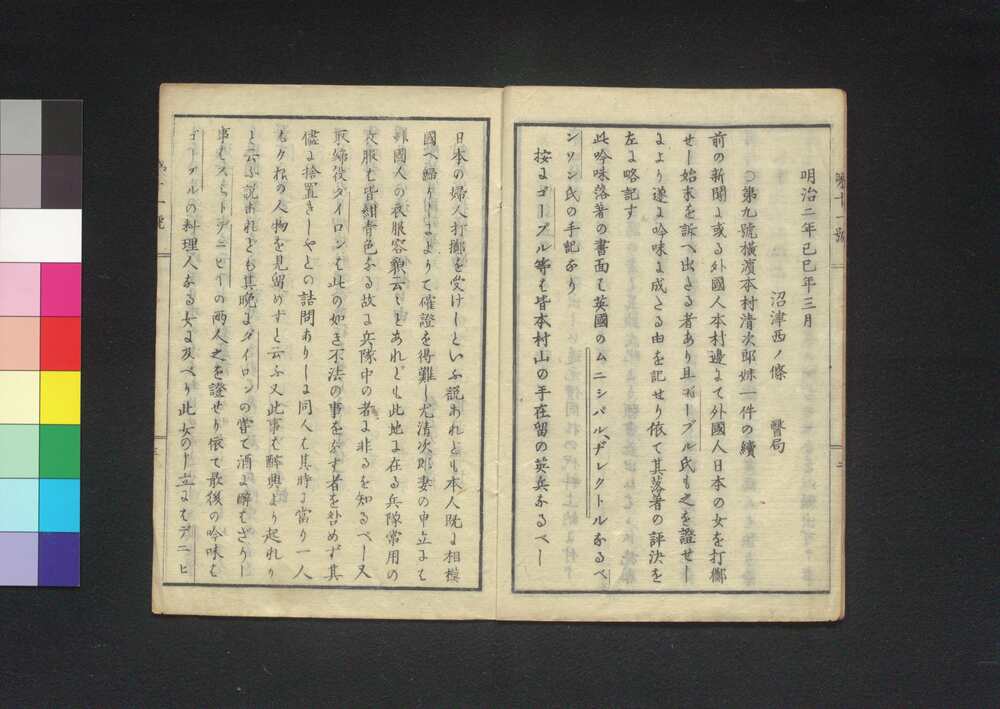 明治二年己巳年三月
沼津西ノ條　醫局
○第九號橫濱本村清次郎妹一件の續
前の新聞よ或る外國人本村邊よて外國人日本の女を打擲
せし始末を訴へ出さる者あり且ゴーブル氏も之を證せし
よより遂よ吟味よ成さる由を記せり依て其落著の評決を
左よ略記す
此吟味落著の書面も英國のムニシパル、ヂレクトルなるベ
ンソン氏の手記なり
按よゴーブル等も皆本村山の手在留の英兵なるべし
日本の婦人打擲を受けしといふ說あれども本人既よ相模
國へ歸りしよよりて確證を得難し尤清次郎妻の申立よも
外國人の衣服容貌云々とあれども此地よ在る兵隊常用の
衣服も皆紺青色なる故よ兵隊中の者よ非るを知るべし又
取締役ダイロンも此の如き不法の事をなす者を咎めず其
儘よ捨置きしやとの詰問ありしよ同人も其時よ當り一人
も夕怪の人物を見留めずと云ふ又此事も醉興より起れり
と云ふ說あれども其晚よダイロンの嘗て酒よ醉もざりし
事もスミットデニヒイの兩人之を證せり依て最後の吟味も
ゴーブルの料理人なる女よ及べり此女の申立よもデニヒ